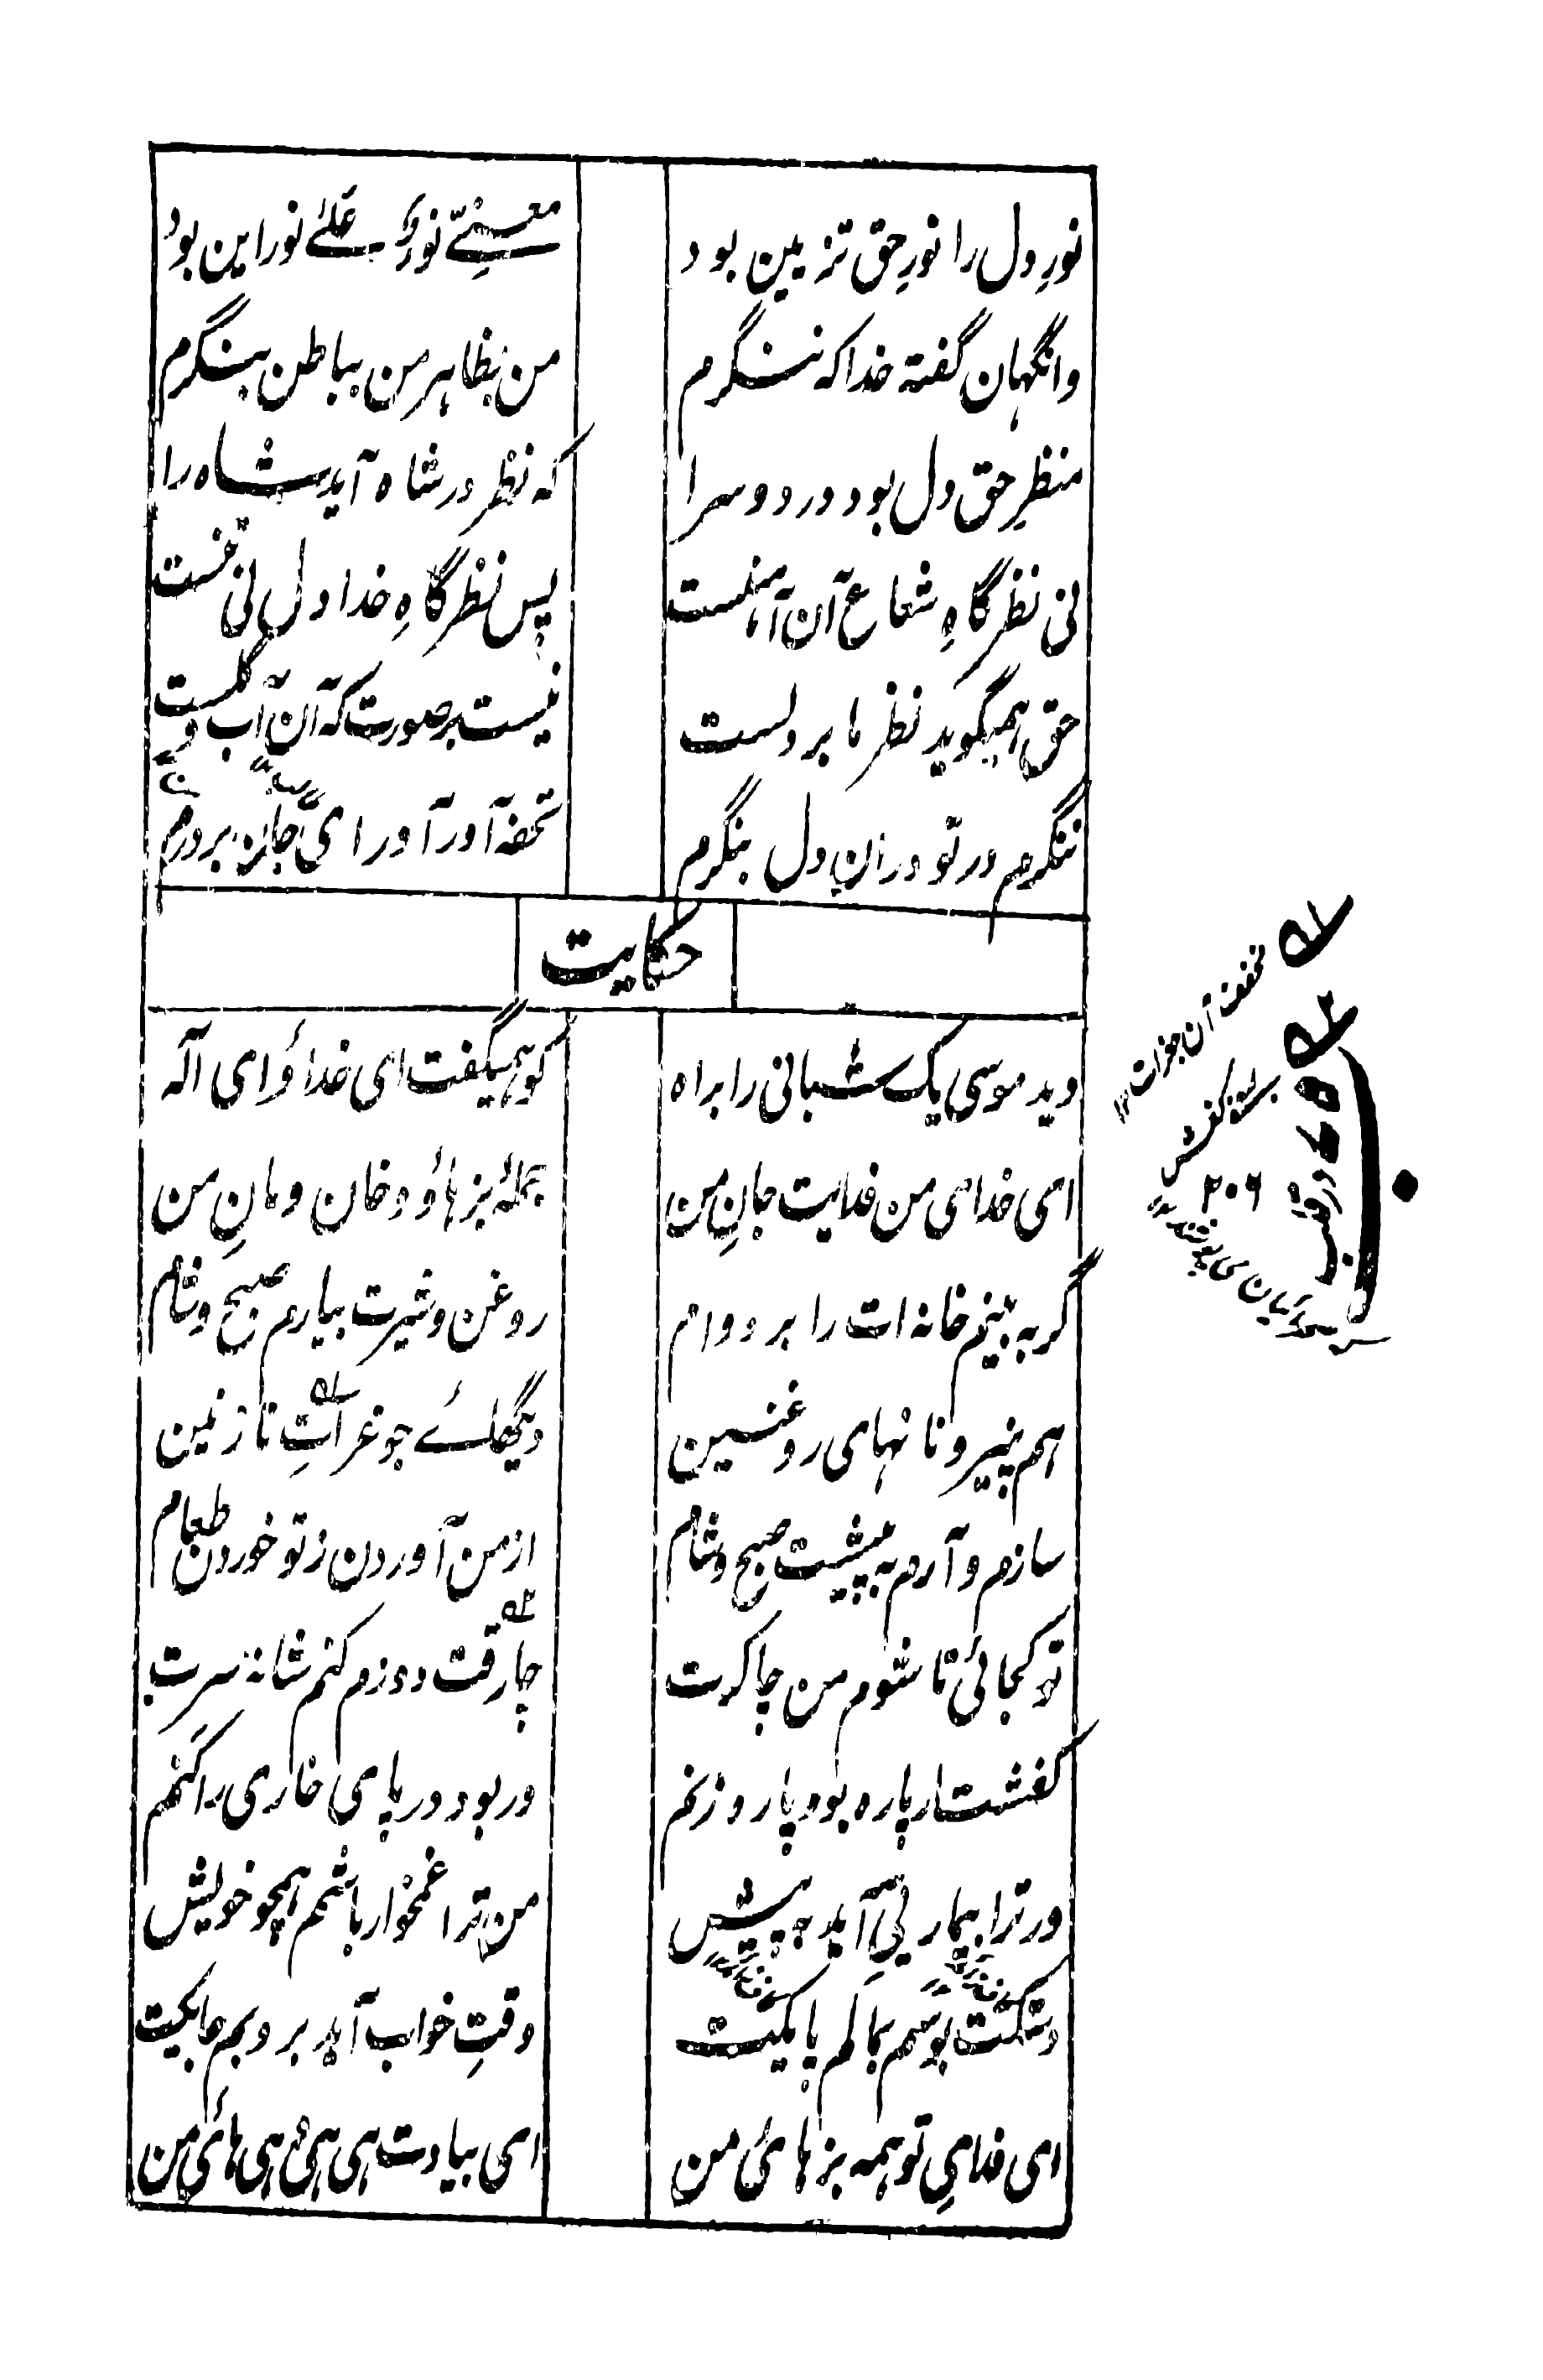 نورِ دل را نورِ حق تزیین بود
معنیِّ نورٌ علےٰ نور این بود
وانگہان گفتہ خدا کہ ننگرم
من بظاہر من بباطن بنگرم
منظرِ حق دل بود در دو سرا
کہ نظر در شاہ آید شاہ را
نی نظرگاہِ شعاع آن آہنست
پس نظرگاہِ خدا دل نی تنست
حق ہمیگوید نظر ما بر دلست
نیست بر صورت کہ آن آب و گلست
ننگرم در تو در ان دل بنگرم
تحفہ آور آور ای جان بر درم
حکایت
دید موسی یک شبانی را براہ
کو ہمیگفت ای خدا و ای الٓہ
ای خدای من فدایت جانِ من
جملۂ بزہا و خان و مانِ من
گر بہ بینم خانہ ات را بر دوام
روغن و شیرت بیارم صبح و شام
ہم پنیر و نانہای روغنین
دیگہائے جوغراتِ نازنین
سازم و آرم بہ پیشت صبح و شام
از من آوردن ز تو خوردن طعام
تو کجائی تا شوم من چاکرت
چارقت دوزم کنم شانہ سرت
کفشت ار پارہ بود پارو زنم
ور بود در پای خاری را کنم
ور ترا بیماریی آید بہ پیش
من ترا غمخوار باشم ہمچو خویش
دستکت بوسم بمالم پایکت
وقتِ خواب آید بروبم جایکت
ای فدایِ تو ہمہ بزہائی من
ای بیادت ہی ہی و ہی ہائی من
مخفف آن جغرات ۱۲